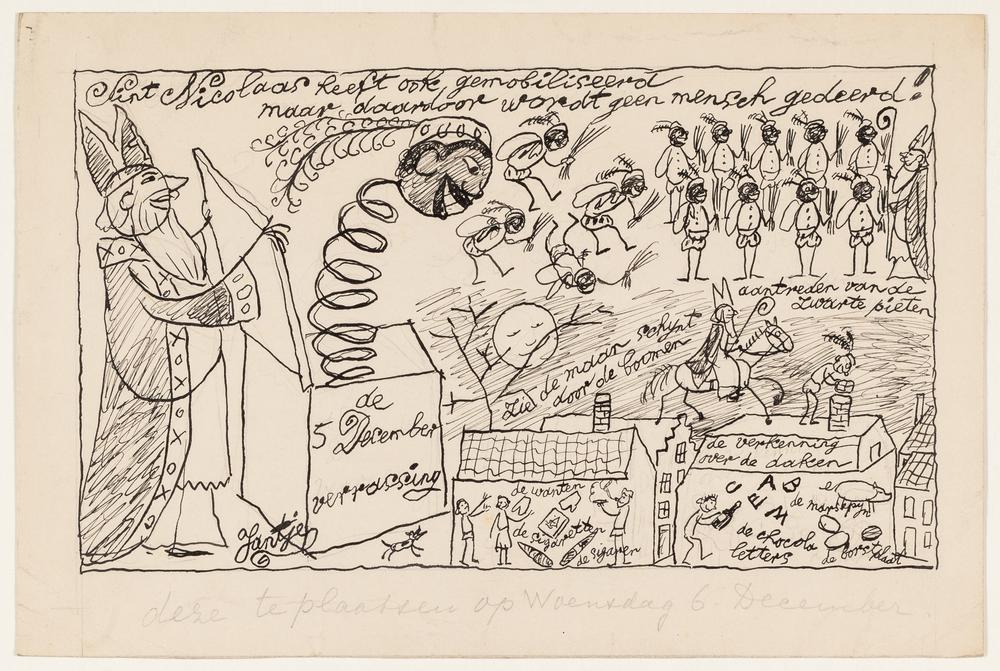 Sint Nicolaas heeft ook gemobiliseerd
maar daardoor wordt geen mensch gedeerd!
aantreden van de
zwarte pieten
Zie de maan schynt
door de boomen
de
5 December
verrassing
de verkenning
over de daken
de wanten
de sigaretten
de sigaren
U A B
E M
de marsepyn
de chocola
letters
de borstplaat
Jantje
deze te plaatsen op Woensdag 6 December.